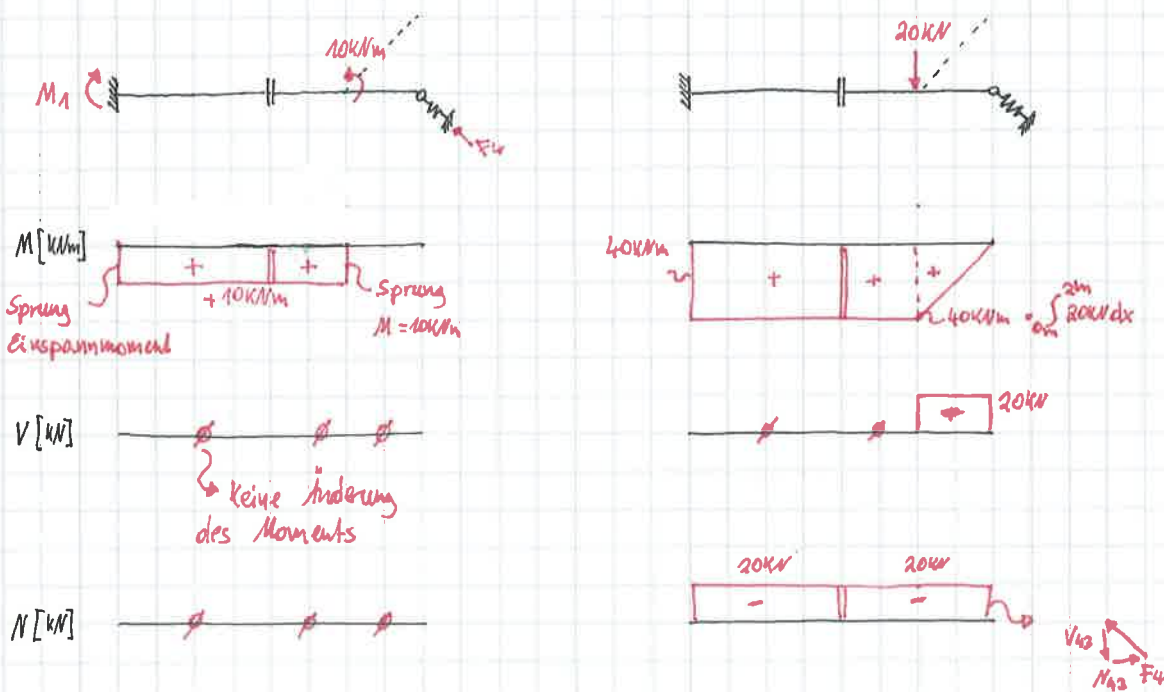 10KNm
M1
F4
20KN
M[KNm]
+
+
+10KNm
Sprung
Einspannmoment
Sprung
M=10KNm
40KNm
+
+
+
40KNm
2m
∫ 20KNdx
0m
V[KN]
ø ø ø
Keine Änderung
des Moments
20KN
N[KN]
ø ø ø
20KN
20KN
-
-
V43
N43
F4